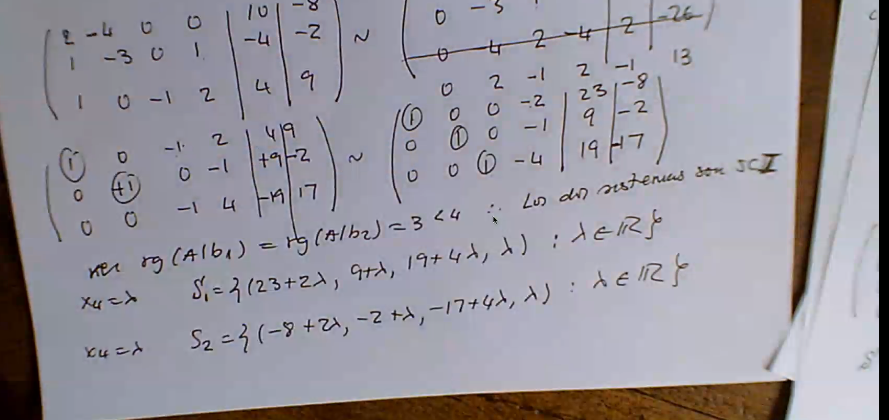 2 -4 0 0 | 10 | -8
1 -3 0 1 | -4 | -2 ~
1 0 -1 2 | 4 | 9
0 -3
0 -4 2 -4 | 2 | -26
0 2 -1 2 -1 13
1 0 -1 2 | 4 | 9
0 +1 0 -1 | +9 | -2 ~
0 0 -1 4 | -19 | 17
1 0 0 -2 | 23 | -8
0 1 0 -1 | 9 | -2
0 0 1 -4 | 19 | -17
rg(A|b₁) = rg(A|b₂) = 3 < 4 ∴ Los dos sistemas son SCI
x₄=λ S₁={(23+2λ, 9+λ, 19+4λ, λ) : λ∈ℝ}
x₄=λ S₂={(-8+2λ, -2+λ, -17+4λ, λ) : λ∈ℝ}